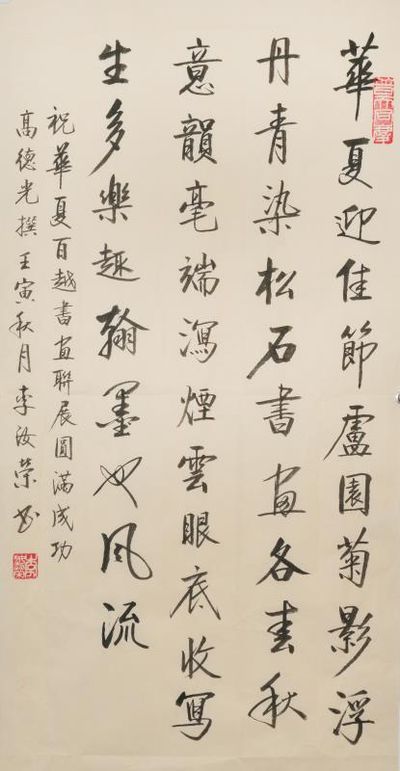 華夏迎佳節盧園菊影浮
丹青染松石書畫各春秋
意韻毫端瀉煙雲眼底收寫
生多樂趣翰墨也風流
祝華夏百越書畫聯展圓滿成功
高德光撰壬寅秋月李汝榮书